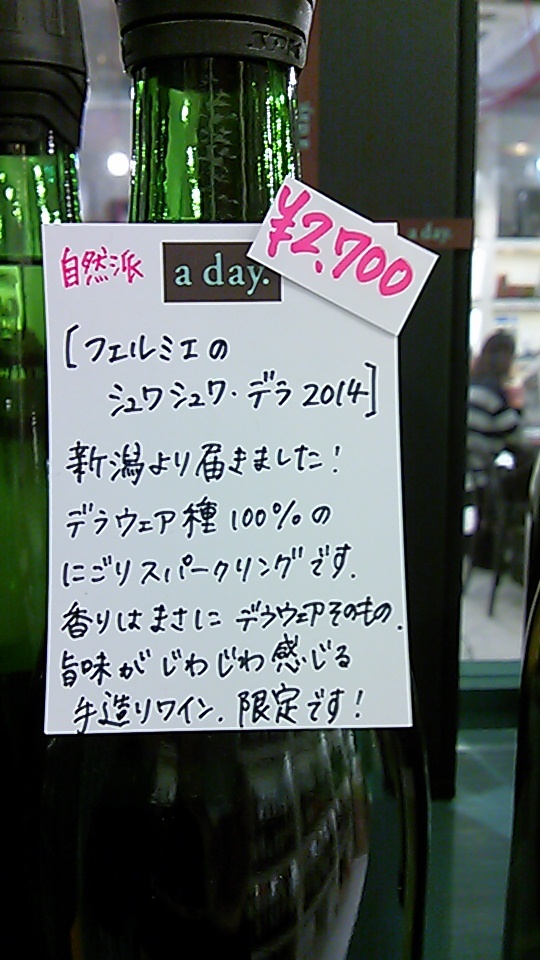 ¥2,700
自然派
a day.
a day.
[フェルミエの
シュワシュワ・デラ 2014]
新潟より届きました!
デラウェア種 100%の
にごりスパークリングです.
香りはまさに デラウェアそのもの.
旨味が じわじわ感じる
手造りワイン. 限定です!